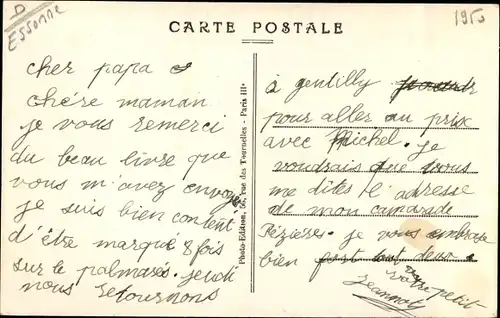 D
ESSONNE
CARTE POSTALE
1950
cher papa &
chère maman
je vous remerci
du beau livre que
vous m'avez envoyé
je suis bien content
d'être marqué 8 fois
sur le palmarès. jeudi
nous retournons
Photo-Edition, 56, rue des Tournelles - Paris IIIe
à gentilly
pour aller au prix
avec Michel. je
voudrais que vous
me dites l'adresse
de mon camarade
Pézières. je vous embrase
bien fort tout deux.
votre petit
Jeannot